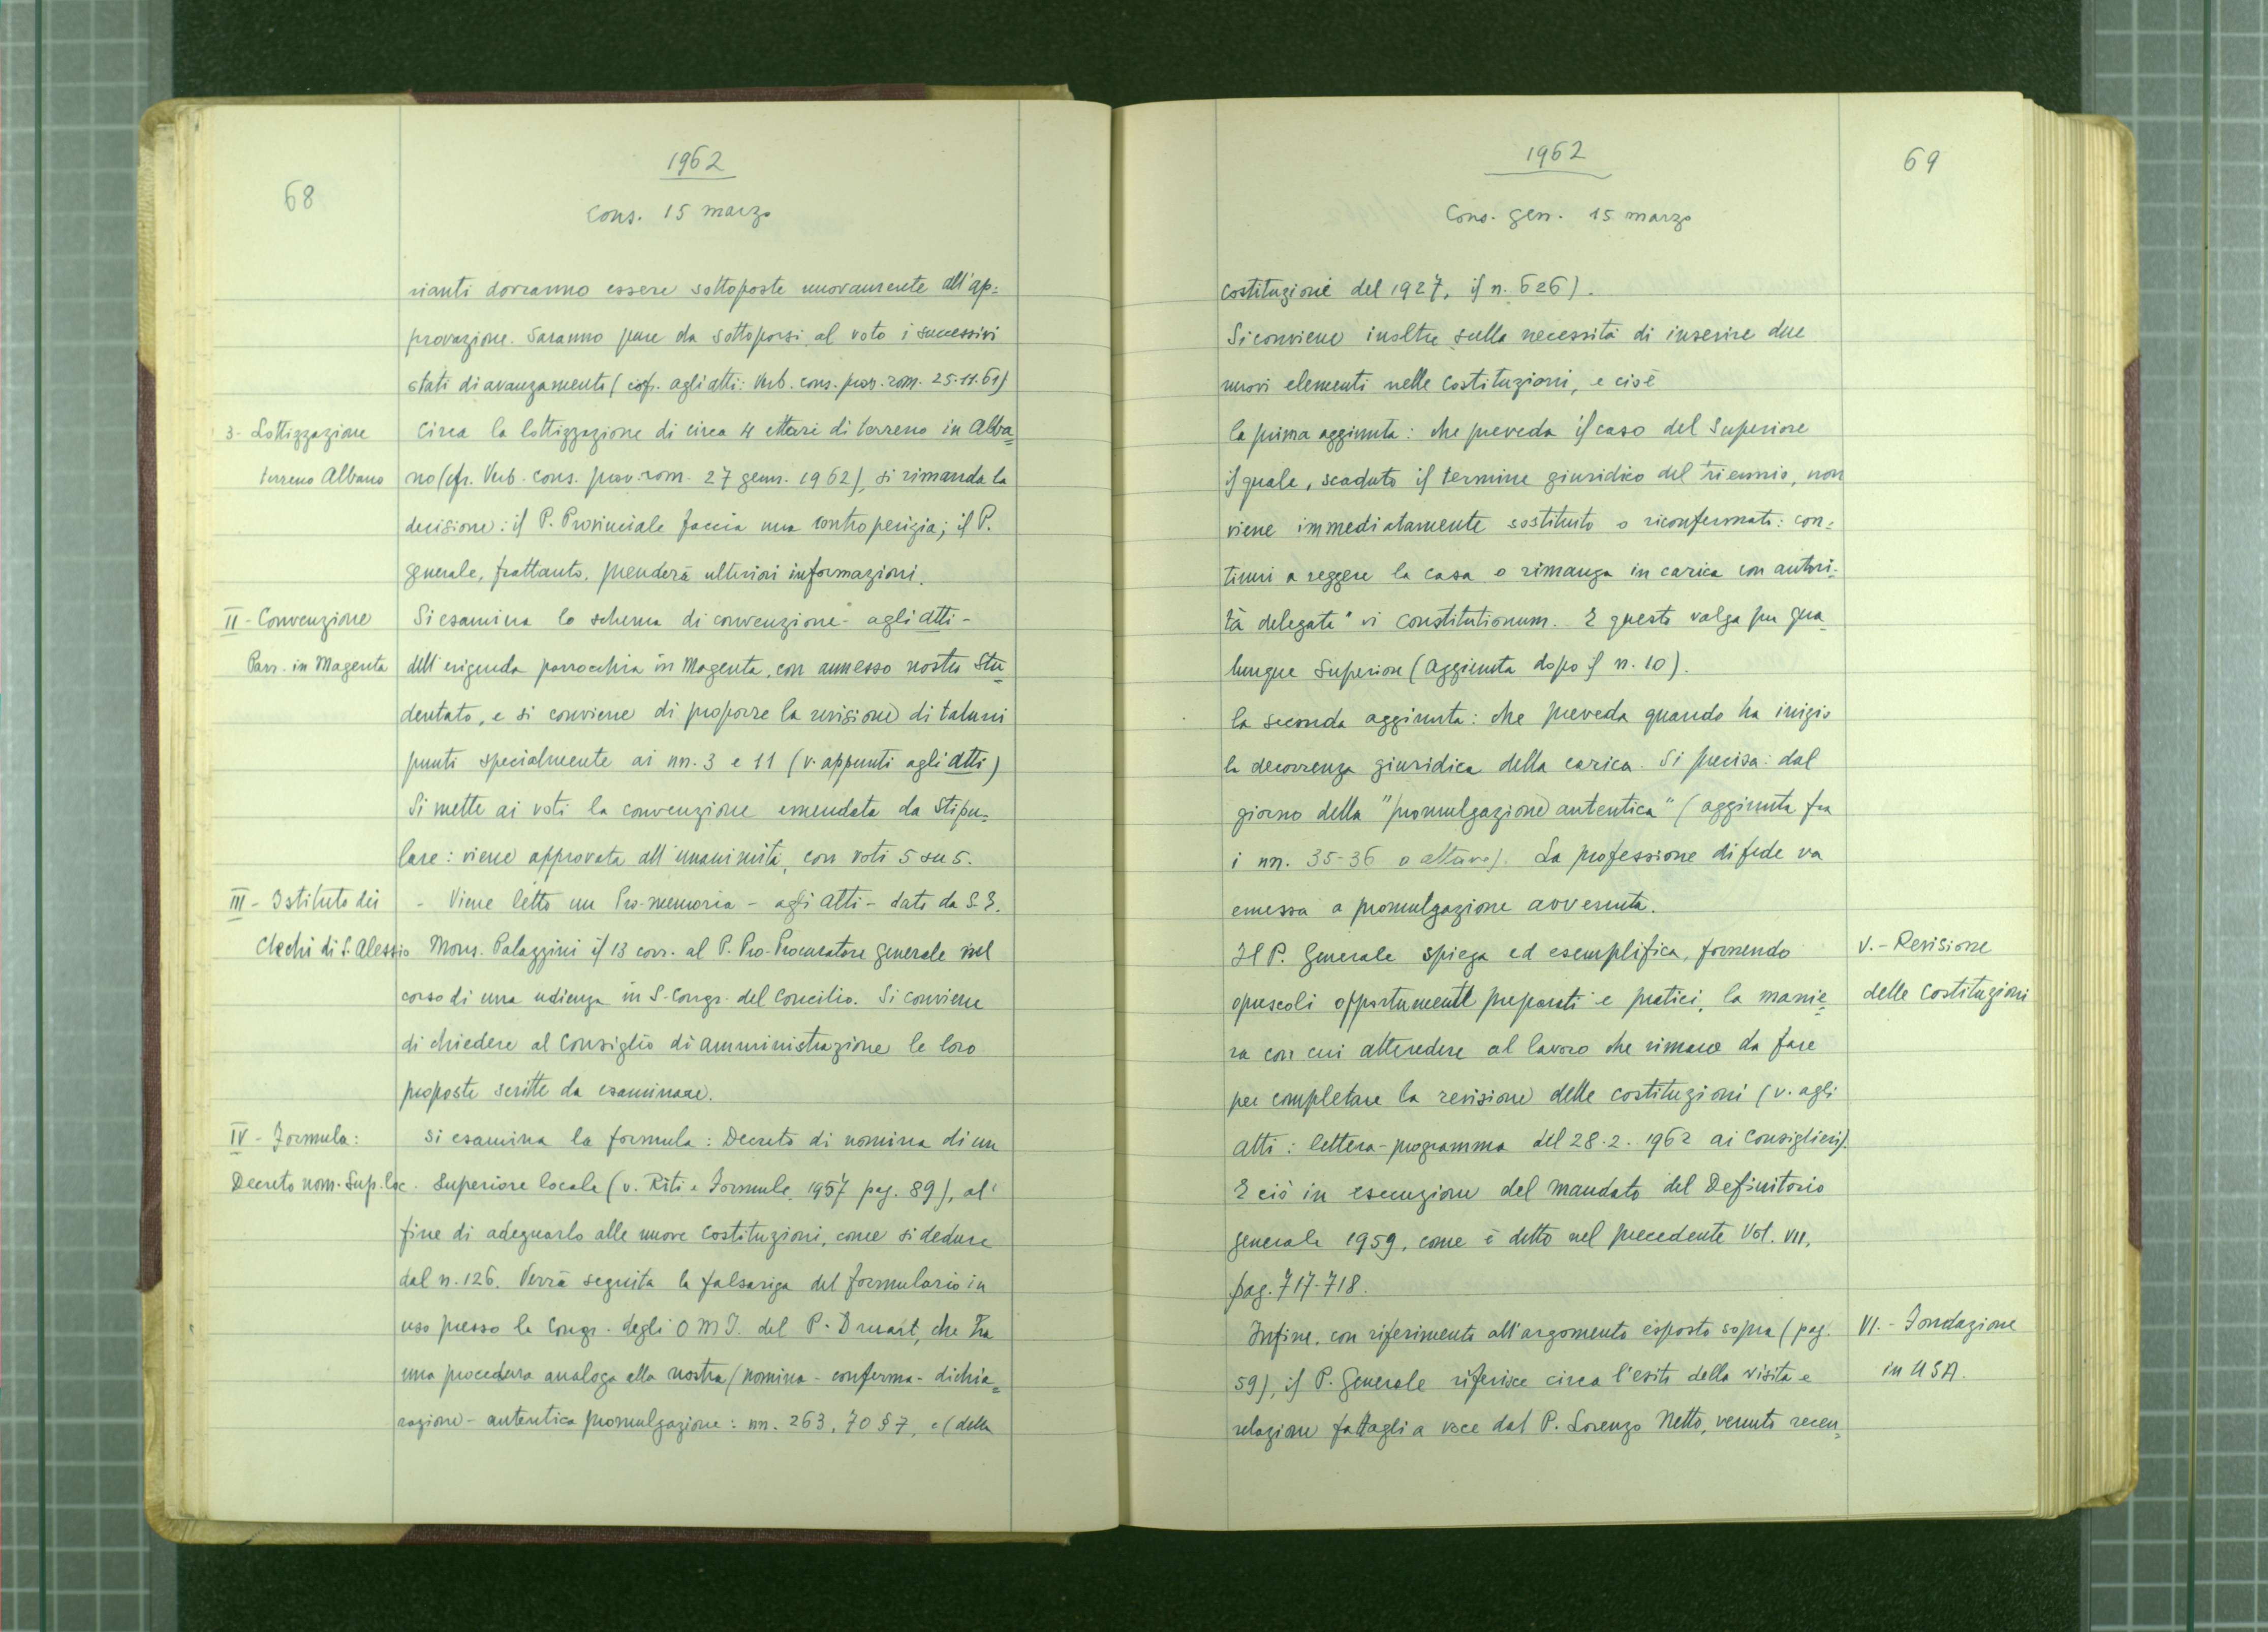 68
1962
Cons. 15 marzo
rianti dovranno essere sottoposte nuovamente all'ap=
provazione. Saranno pure da sottoporsi al voto i successivi
stati di avanzamento (cfr. agli atti: Verb. cons. prov. rom. 25.11.61)
3- Lottizzazione
terreno Albano
Circa la lottizzazione di circa 4 ettari di terreno in Alba=
no (cfr. Verb. cons. prov. rom. 27 genn. 1962), si rimanda la
decisione: il P. Provinciale faccia una controperizia; il P.
Generale, frattanto, prenderà ulteriori informazioni.
II - Convenzione
Parr. in Magenta
Si esamina lo schema di convenzione - agli atti -
dell'erigenda parrocchia in Magenta, con annesso nostro Stu=
dentato, e si conviene di proporre la revisione di taluni
punti specialmente ai nn. 3 e 11 (v. appunti agli atti)
Si mette ai voti la convenzione emendata da stipu=
lare: viene approvata all'unanimità, con voti 5 su 5.
III - Istituto dei
Ciechi di S. Alessio
- Viene letto un Pro-memoria - agli atti - dato da S.E.
Mons. Palazzini il 13 corr. al P. Pro-Procuratore Generale nel
corso di una udienza in S. Congr. del Concilio. Si conviene
di chiedere al Consiglio di amministrazione le loro
proposte scritte da esaminare.
IV - Formula:
Decreto nom. Sup. loc.
Si esamina la formula: Decreto di nomina di un
Superiore locale (v. Riti e Formule, 1957 pag. 89), al
fine di adeguarlo alle nuove Costituzioni, come si deduce
dal n. 126. Verrà seguita la falsariga del formulario in
uso presso la Congr. degli O M I. del P. Druart, che ha
una procedura analoga alla nostra (nomina - conferma - dichia=
razione - autentica promulgazione: nn. 263, 70 § 7, e (della
1962
69
Cons. gen. 15 marzo
Costituzione del 1927, il n. 626).
Si conviene inoltre sulla necessità di inserire due
nuovi elementi nelle Costituzioni, e cioè
la prima aggiunta: che preveda il caso del Superiore
il quale, scaduto il termine giuridico del triennio, non
viene immediatamente sostituito o riconfermato: con=
tinui a reggere la casa o rimanga in carica con autori=
tà delegata "vi Constitutionum. E questo valga per qua=
lunque Superiore (Aggiunta dopo il n. 10).
la seconda aggiunta: che preveda quando ha inizio
la decorrenza giuridica della carica. Si precisa: dal
giorno della "promulgazione autentica" (aggiunta fra
i nn. 35-36 o altrove). La professione di fede va
emessa a promulgazione avvenuta.
V. - Revisione
delle Costituzioni
Il P. Generale spiega ed esemplifica, fornendo
opuscoli opportunamente preparati e pratici, la manie=
ra con cui attendere al lavoro che rimane da fare
per completare la revisione delle costituzioni (v. agli
Atti: lettera-programma del 28.2.1962 ai Consiglieri).
E ciò in esecuzione del mandato del Definitorio
generale 1959, come è detto nel precedente Vol. VII,
pag. 717-718.
VI. - Fondazione
in USA.
Infine, con riferimento all'argomento esposto sopra (pag.
59), il P. Generale riferisce circa l'esito della visita e
relazione fattagli a voce dal P. Lorenzo Netto, venuto recen=